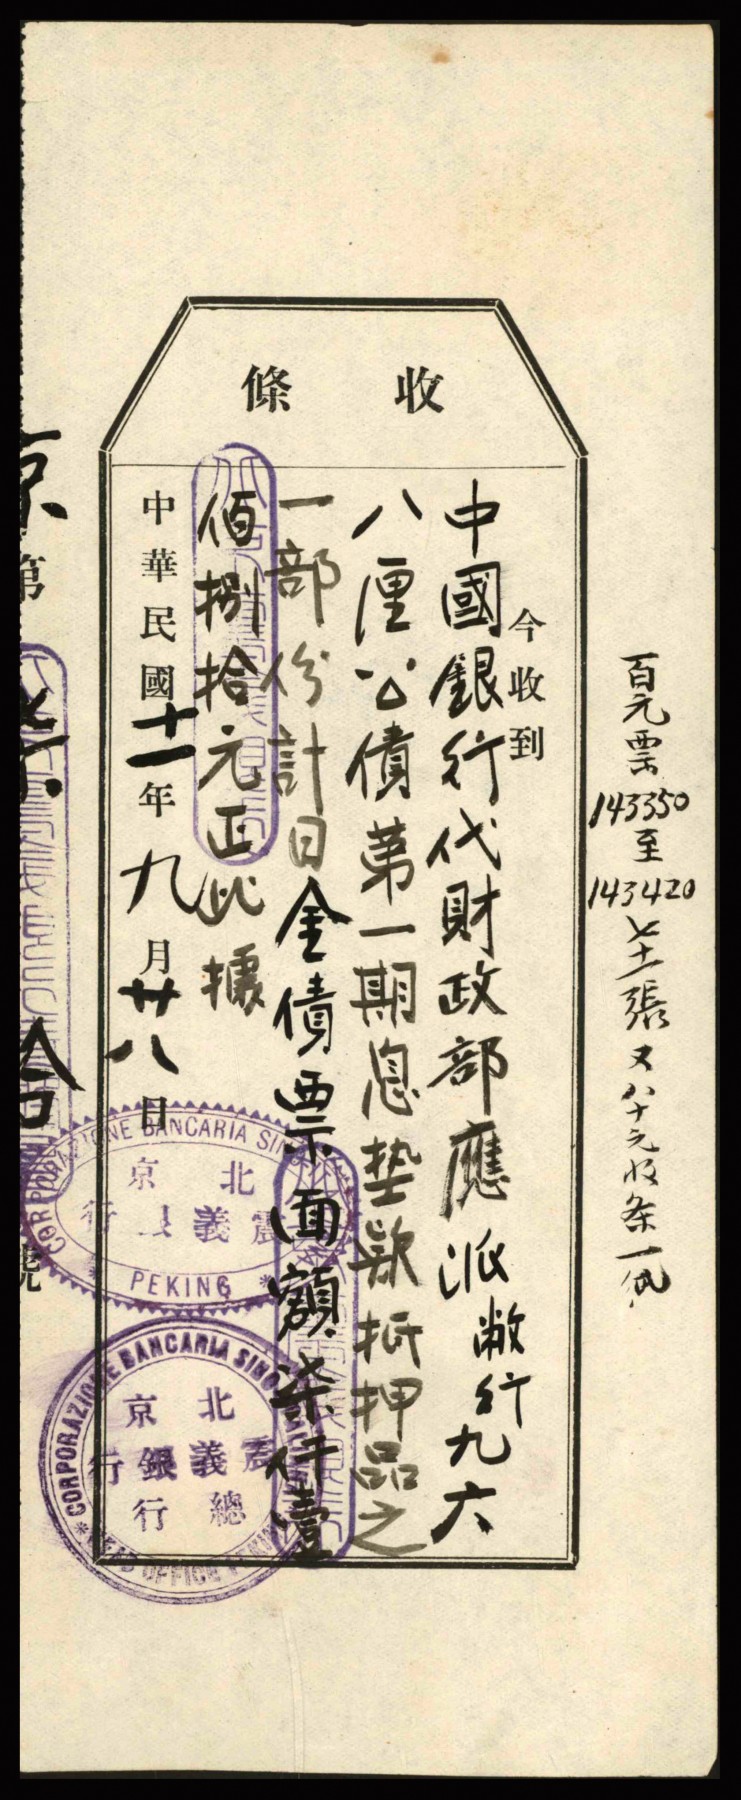 收條
今收到
中國銀行代財政部應派敝行九六
八厘公債第一期息墊款抵押品之
一部份計日金債票面額柒仟壹
佰捌拾元正此據
中華民國十一年九月廿八日
百元票143350至143420七十一張又八十元收条一紙
京第柒拾號
CORPORAZIONE BANCARIA SINO
北京
震義銀行
PEKING
CORPORAZIONE BANCARIA SINO
北京
震義銀行
總行
HEAD OFFICE PEKING